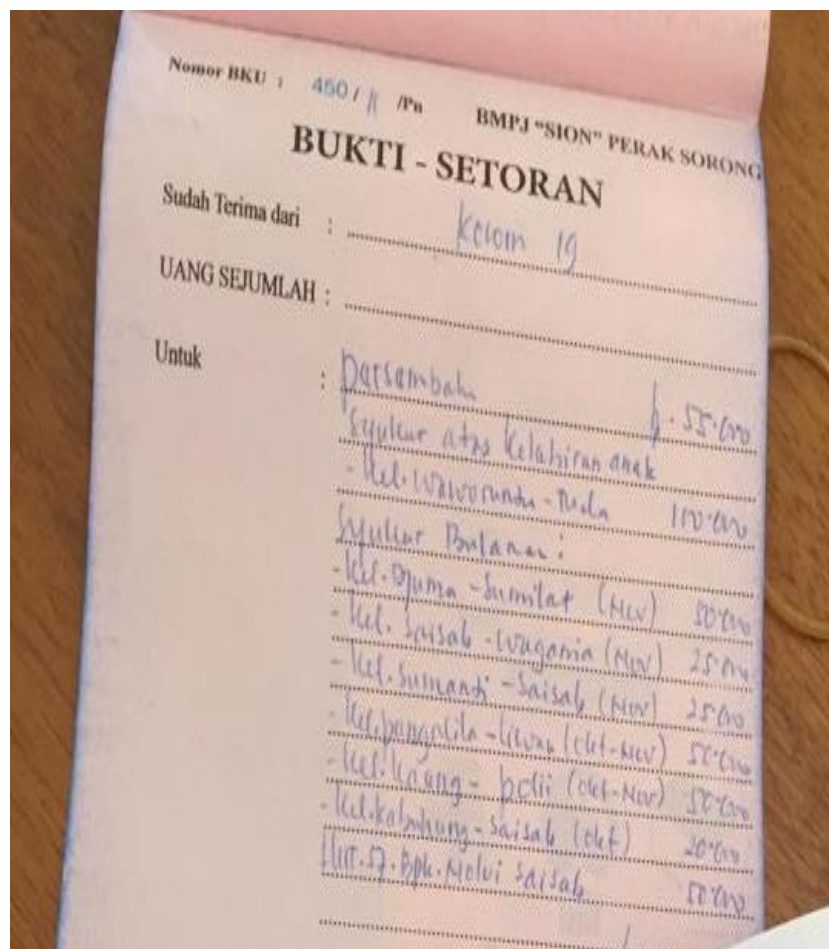 Nomor BKU : 450 / 11 /Pn BMPJ "SION" PERAK SORONG
BUKTI - SETORAN
Sudah Terima dari : Kolom 19
UANG SEJUMLAH :
Untuk : Persembah
55.000
Syukur atas Kelahiran anak
- Kel. Waworuntu - 100.000
Syukur Bulanan :
- Kel. Djuma - Sumilat (Nov) 50.000
- Kel. Saisab - Wagania (Nov) 25.000
- Kel. Sumanti - Saisab (Nov) 25.000
- Kel. (Okt-Nov) 50.000
- Kel. (Okt-Nov) 50.000
- Kel. Kabuhung - Saisab (Okt) 20.000
HUT. Bpk. Melvi Saisab 50.000